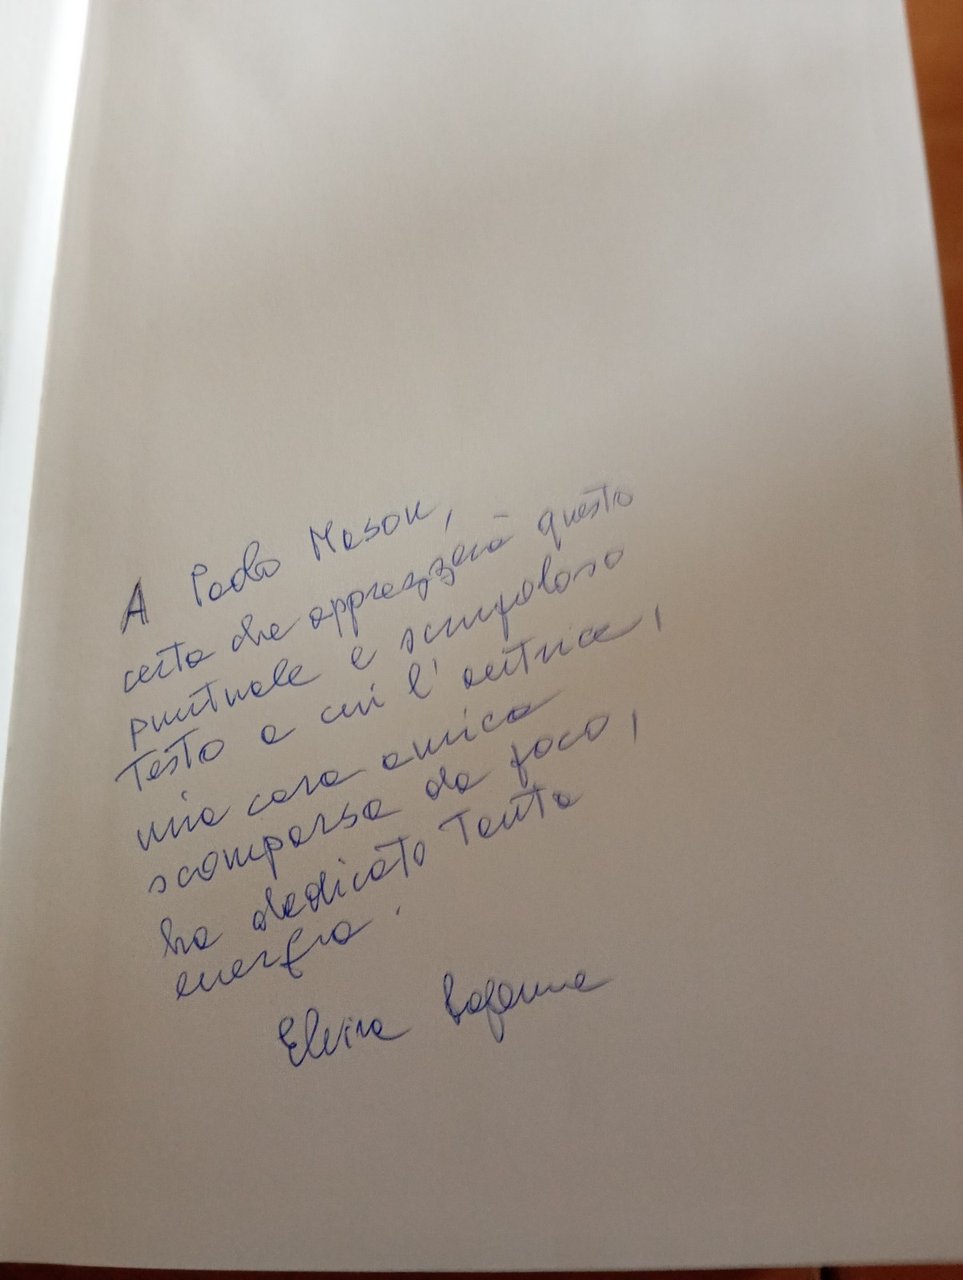 A Paolo Mason,
certa che apprezzerà questo
puntuale e scrupoloso
testo a cui l'autrice,
mia cara amica
scomparsa da poco,
ha dedicato tanta
energia.
Elvira